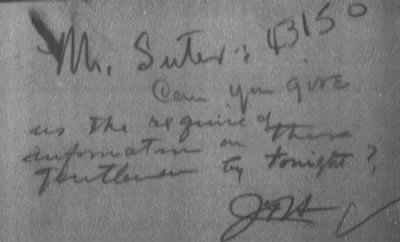 Mr. Suter: 43150
Can you give
us the required
information on these
gentlemen by tonight?